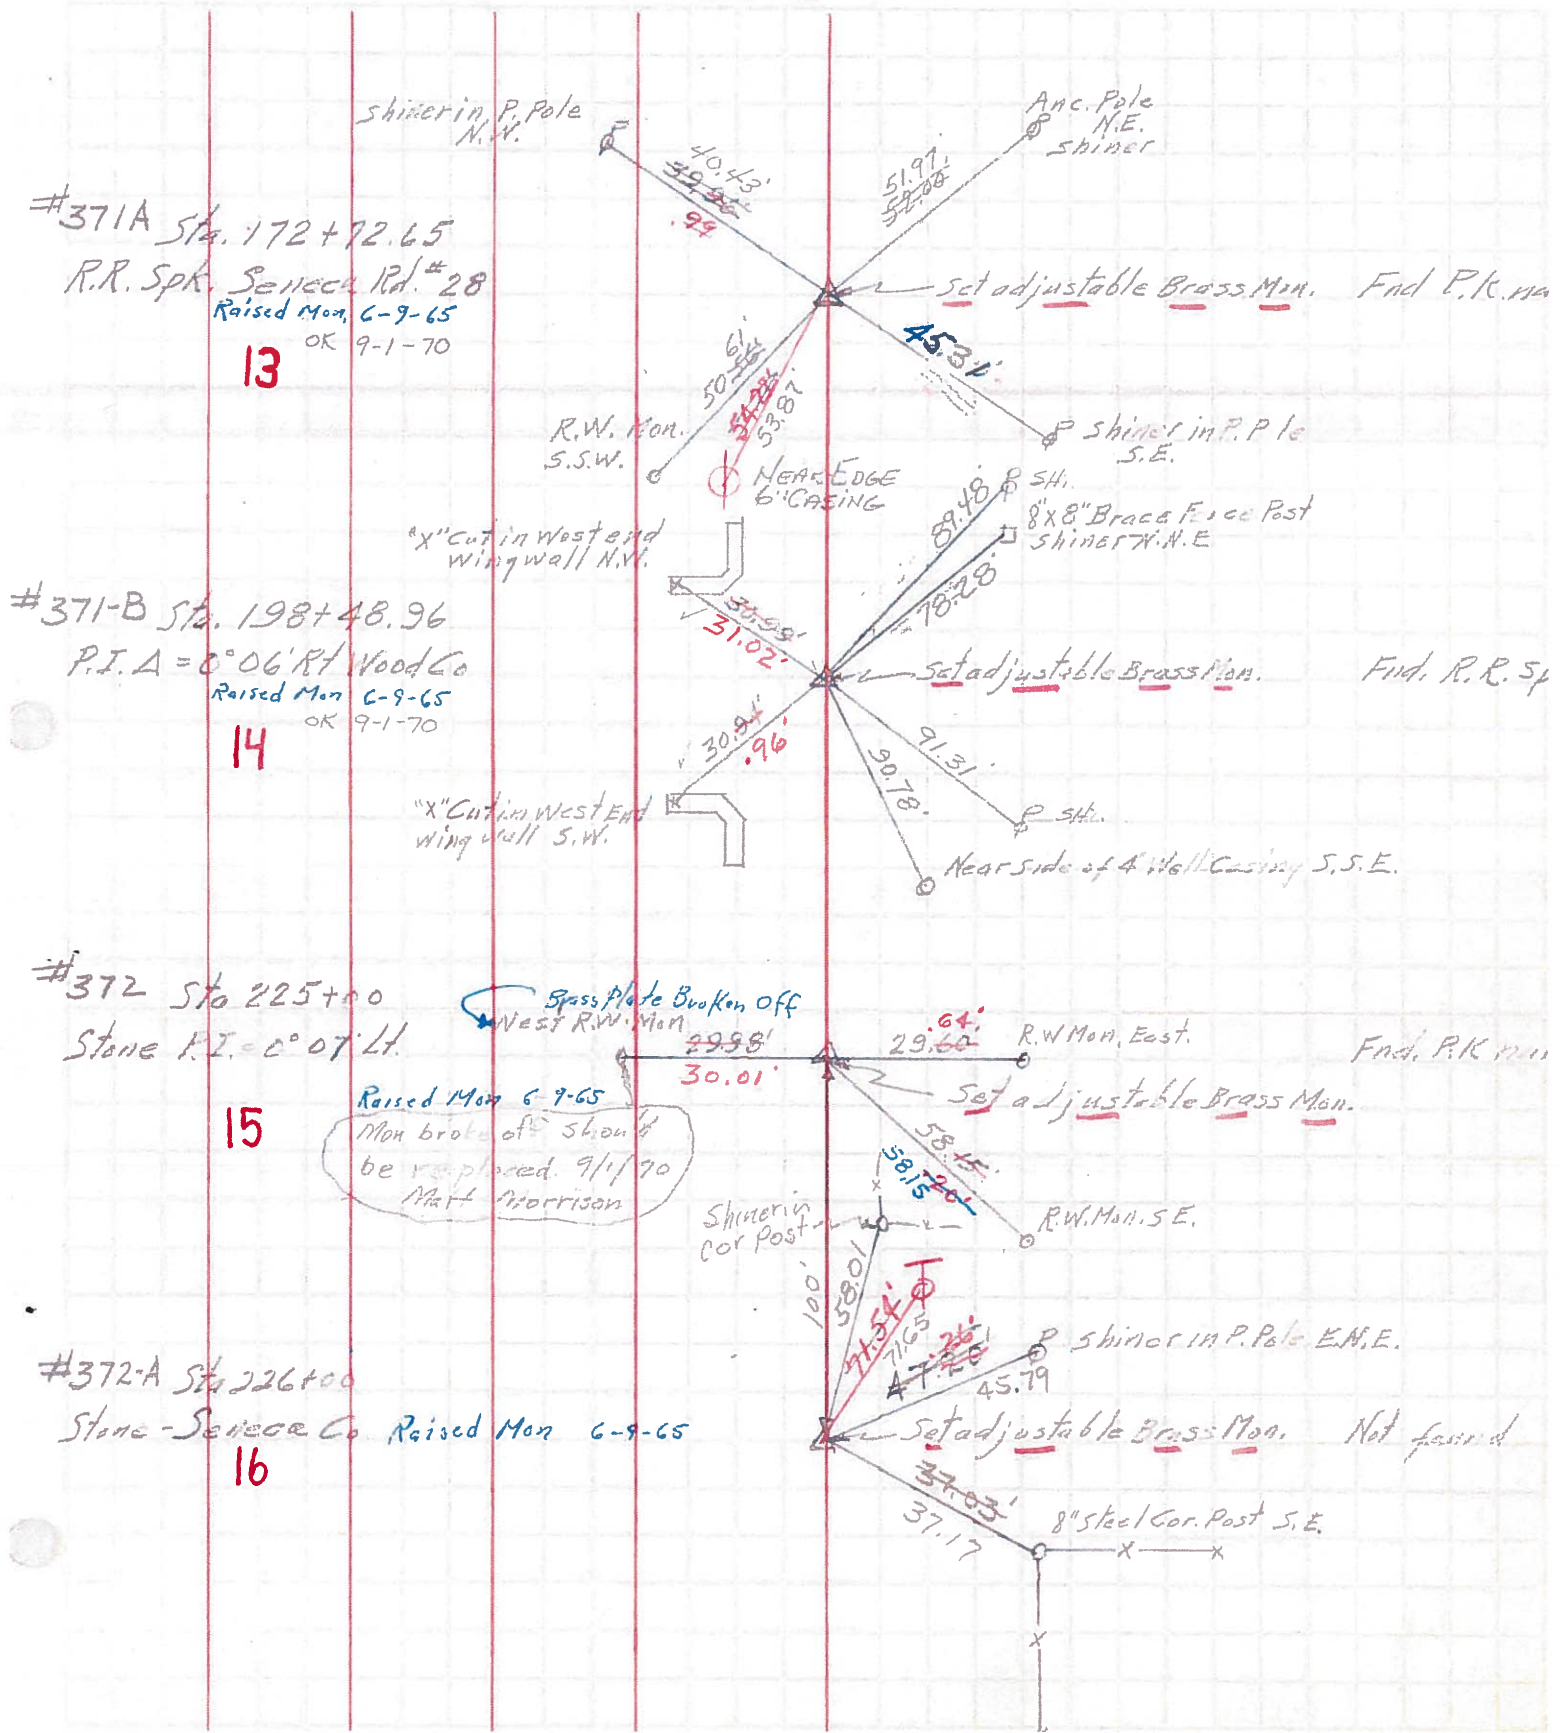 shiner in P. Pole
N.W.
Anc. Pole
N.E.
shiner
40.43'
.99
51.97'
52.00
#371A Sta. 172+72.65
R.R. Spk. Seneca Rd. #28
Raised Mon. 6-9-65
OK 9-1-70
13
Set adjustable Brass Mon.
Fnd P.K. na
45.31'
61'
50.56'
53.87
R.W. Mon.
S.S.W.
NEAR EDGE
6" CASING
shiner in P. P le
S.E.
SH.
89.48'
8"x8" Brace Fence Post
shiner N.N.E
78.28'
"X" Cut in West end
wing wall N.W.
30.99'
31.02'
#371-B Sta. 198+48.96
P.I. Δ = 0°06' Rt Wood Co
Raised Mon 6-9-65
OK 9-1-70
14
Set adjustable Brass Mon.
Fnd. R.R. Sp
30.94'
.96'
91.31'
90.78'
"X" Cut in West End
wing wall S.W.
SH.
Near side of 4" Well Casing S.S.E.
#372 Sta 225+00
Stone P.I. = 0°07' Lt.
Brass Plate Broken Off
West R.W. Mon
29.98'
30.01'
.64'
29.60'
R.W Mon. East.
Fnd. P.K nai
Set adjustable Brass Mon.
Raised Mon 6-9-65
15
Mon broke off should
be replaced 9/1/70
Mart Morrison
58.15'
58.15 .20'
R.W. Mon. S E.
Shiner in
cor Post
100'
58.01
71.54'
71.65
.26'
47.20'
shiner in P. Pole E.N.E.
45.79
#372-A Sta 226+00
Stone - Seneca Co
Raised Mon 6-9-65
16
Set adjustable Brass Mon.
Not found
37.03'
37.17
8" Steel Cor. Post S.E.